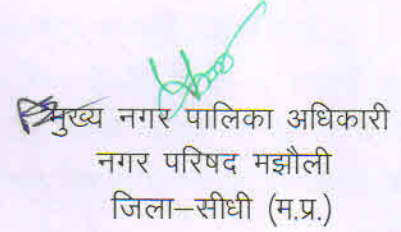 मुख्य नगर पालिका अधिकारी
नगर परिषद मझौली
जिला–सीधी (म.प्र.)